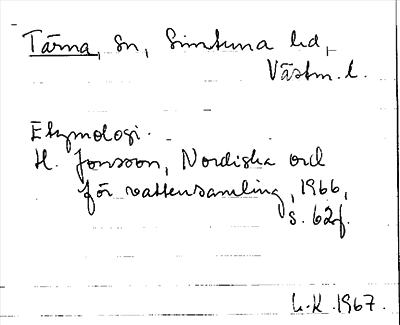 Tärna, sn, Simtuna hd,
Västm. l.
Etymologi.
H. Jonsson, Nordiska ord
för vattensamling, 1966,
s. 62f.
L.K. 1967.